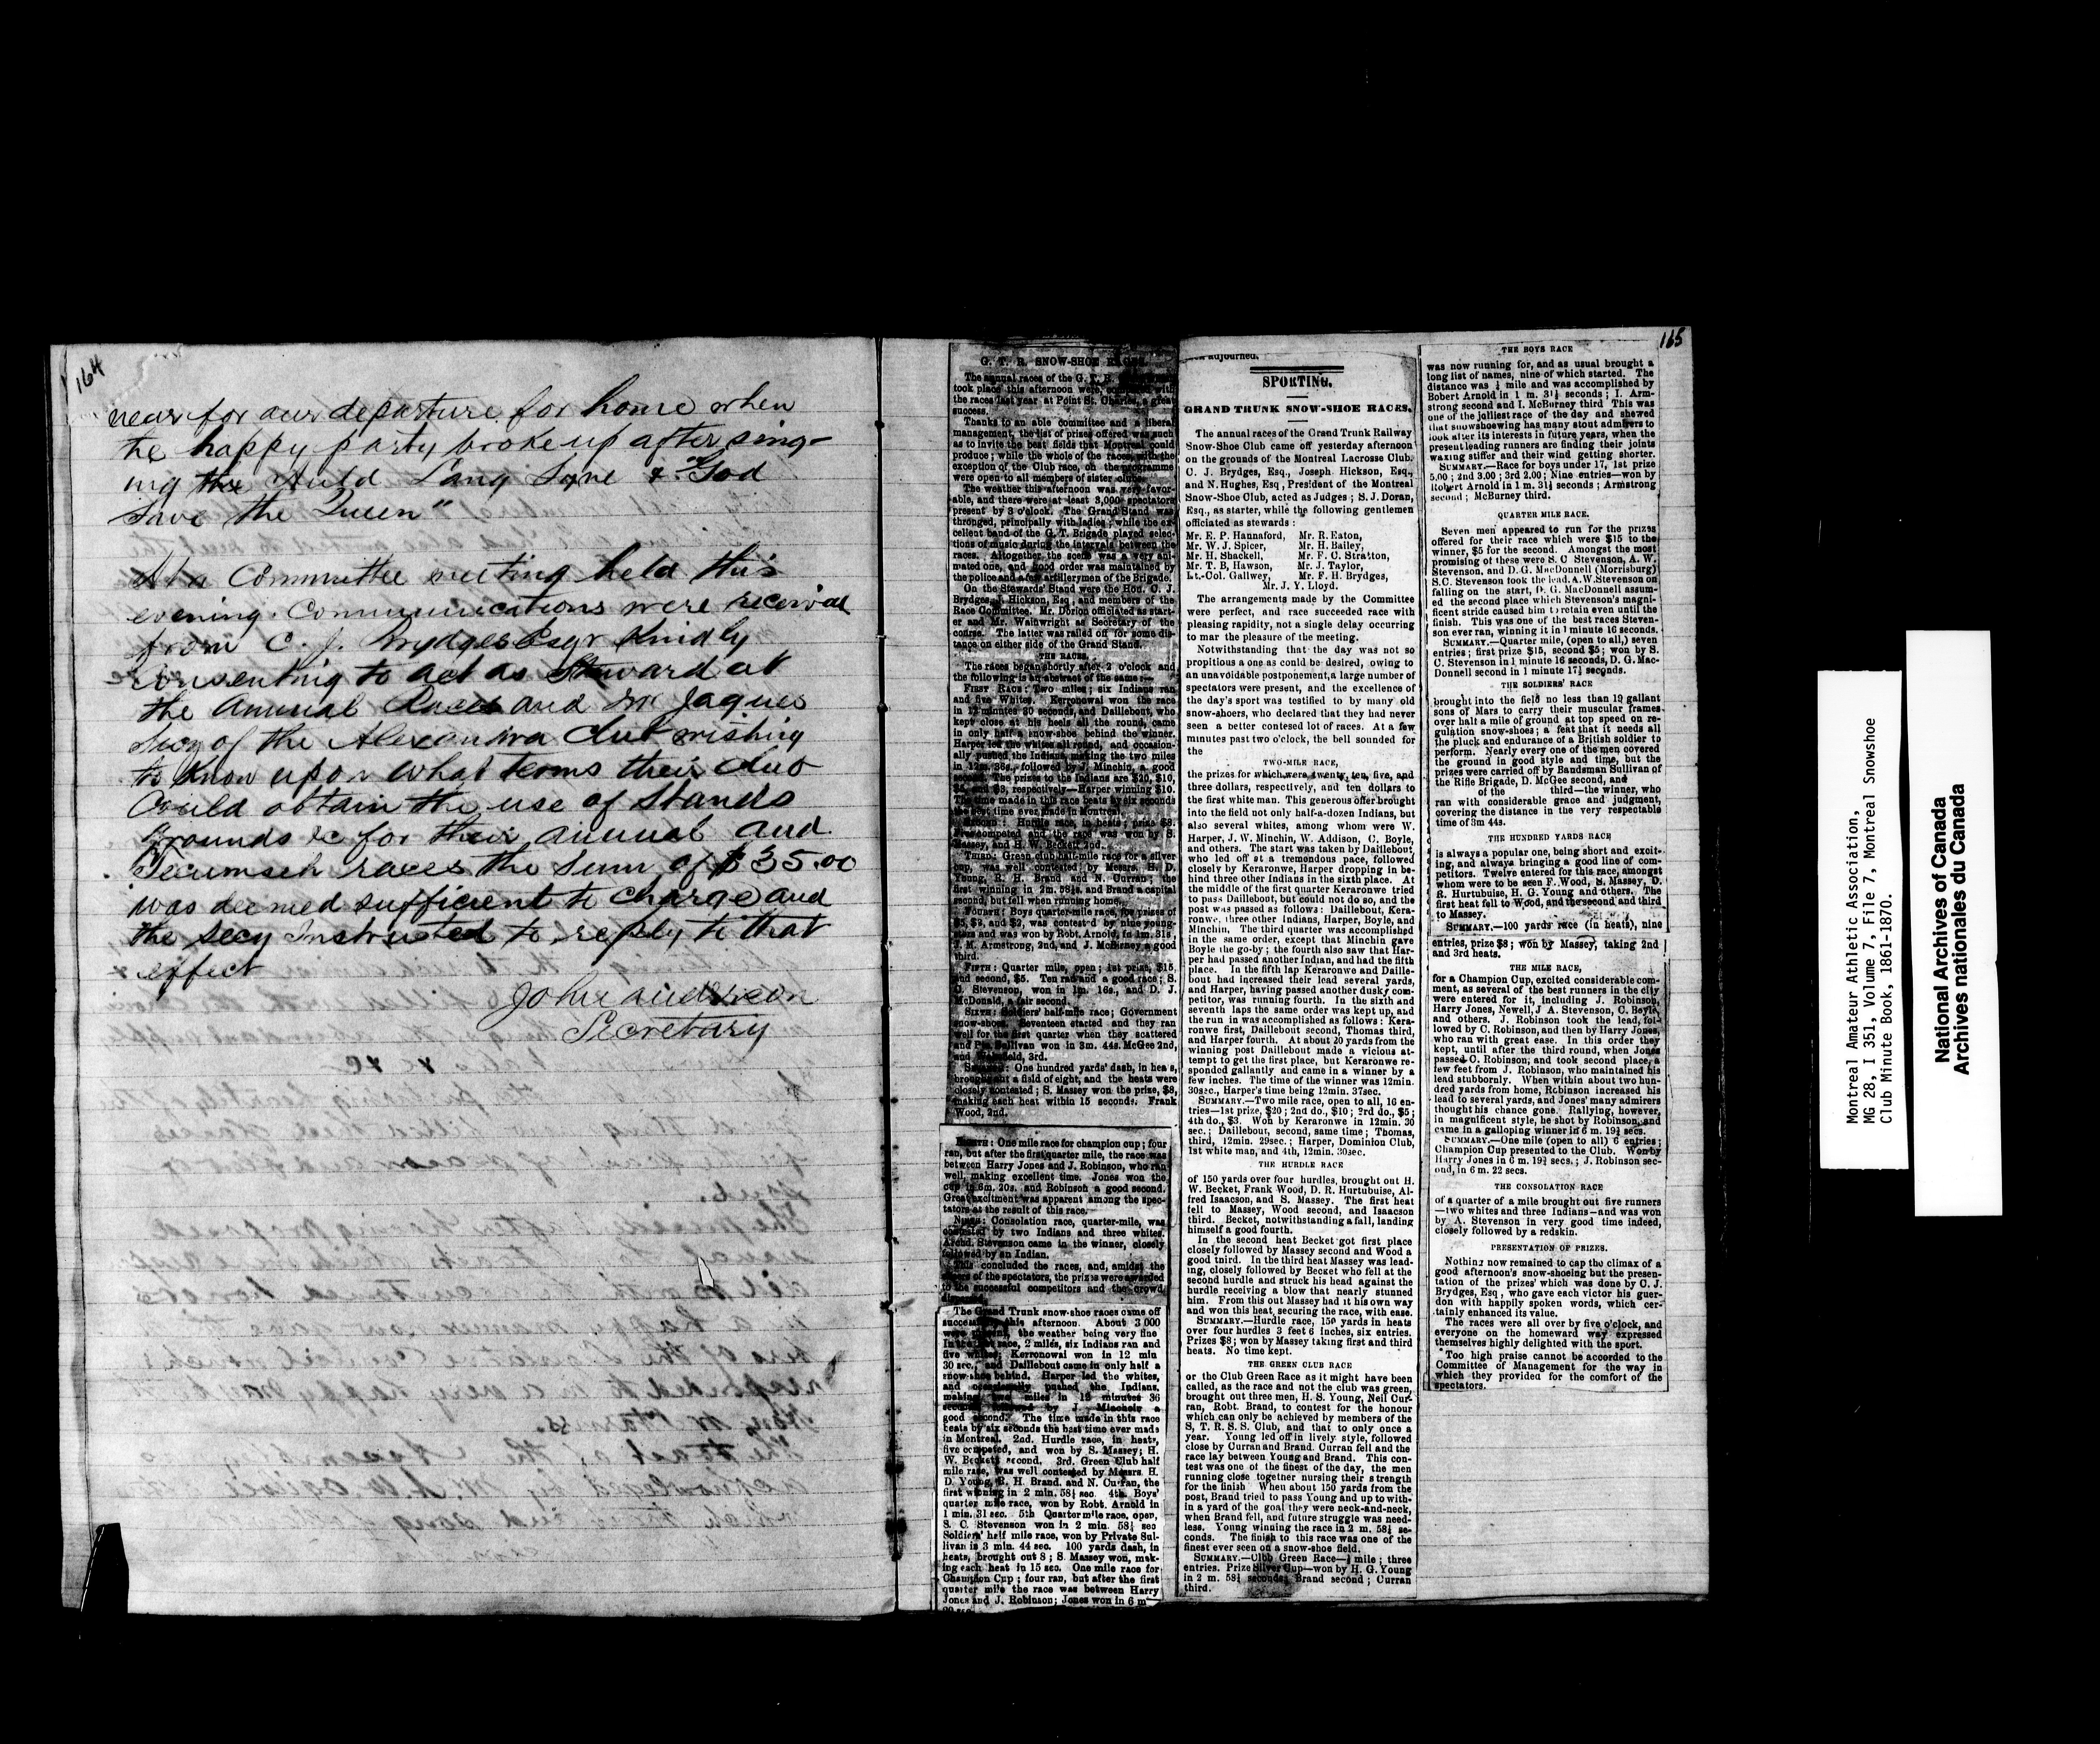 164
near for our departure for home when
the happy party broke up after sing-
ing the Auld Lang Syne & "God
Save the Queen"
At a Committee meeting held this
evening. Communications were received
from C. J. Brydges Esqr Kindly
consenting to act as Steward at
the Annual Races and Mr Jaques
Secy of the Alexandra Club wishing
to know upon what terms their club
Could obtain the use of Stands
Grounds &c for their annual and
Tecumseh races the Sum of $35.00
was deemed sufficient to charge and
the Secy Instructed to reply to that
effect
John Anderson
Secretary
165
G. T. R. SNOW-SHOE RACES.
The annual races of the G. T. R.
took place this afternoon were, with
the races last year at Point St. Charles, a great
success.
Thanks to an able committee and a liberal
management, the list of prizes offered was such
as to invite the best fields that Montreal could
produce; while the whole of the races, with the
exception of the Club race, on the programme
were open to all members of sister clubs.
The weather this afternoon was very favor-
able, and there were at least 3,000 spectators
present by 3 o'clock. The Grand Stand was
thronged, principally with ladies; while the ex-
cellent band of the G. T. Brigade played selec-
tions of music during the intervals between the
races. Altogether, the scene was a very ani-
mated one, and good order was maintained by
the police and a few artillerymen of the Brigade.
On the Stewards' Stand were the Hon. C. J.
Brydges, J. Hickson, Esq., and members of the
Race Committee. Mr. Dorion officiated as start-
er and Mr. Wainwright as Secretary of the
course. The latter was railed off for some dis-
tance on either side of the Grand Stand.
THE RACES.
The races began shortly after 2 o'clock and
the following is an abstract of the same:—
FIRST RACE: Two miles; six Indians ran
and five Whites. Kerronowai won the race
in 12 minutes 30 seconds, and Daillebout, who
kept close at his heels all the round, came
in only half a snow-shoe behind the winner.
Harper led the whites all round, and occasion-
ally pushed the Indians, making the two miles
in 12m. 36s., followed by J. Minchin, a good
second. The prizes to the Indians are $20, $10,
$5, and $3, respectively—Harper winning $10.
The time made in this race beats by six seconds
the best time ever made in Montreal.
SECOND: Hurdle race, in heats; prize $8.
Five competed and the race was won by S.
Massey, and H. W. Beckett 2nd.
THIRD: Green club half-mile race for a silver
cup, was well contested by Messrs. H. D.
Young, R. H. Brand and N. Curran; the
first winning in 2m. 58½s. and Brand a capital
second, but fell when running home.
FOURTH: Boys quarter-mile race, for prizes of
$5, $3, and $2, was contested by nine young-
sters and was won by Robt. Arnold, in 1m. 31s,
J. M. Armstrong, 2nd, and J. McBurney a good
third.
FIFTH: Quarter mile, open; 1st prize, $15,
and second, $5. Ten ran and a good race; S.
C. Stevenson, won in 1m. 16s., and D. J.
McDonald, a fair second.
SIXTH: Soldiers' half-mile race; Government
snow-shoes. Seventeen started and they ran
well for the first quarter when they scattered
and Pte. Sullivan won in 3m. 44s. McGee 2nd,
and 3rd.
SEVENTH: One hundred yards' dash, in heats,
brought out a field of eight, and the heats were
closely contested; S. Massey won the prize, $8,
making each heat within 15 seconds. Frank
Wood, 2nd.
EIGHTH: One mile race for champion cup; four
ran, but after the first quarter mile, the race was
between Harry Jones and J. Robinson, who ran
well, making excellent time. Jones won the
cup in 6m. 20s. and Robinson a good second.
Great excitment was apparent among the spec-
tators at the result of this race.
NINTH: Consolation race, quarter-mile, was
contested by two Indians and three whites.
Archd. Stevenson came in the winner, closely
followed by an Indian.
This concluded the races, and, amidst the
cheers of the spectators, the prizes were awarded
to the successful competitors and the crowd
dispersed.
The Grand Trunk snow-shoe races came off
successfully this afternoon. About 3 000
were present, the weather being very fine
In the 1st race, 2 miles, six Indians ran and
five whites; Kerronowai won in 12 min
30 sec., and Daillebout came in only half a
snow-shoe behind. Harper led the whites,
and occasionally pushed the Indians,
making two miles in 12 minutes 36
seconds, followed by J. Minchin a
good second. The time made in this race
beats by six seconds the best time ever made
in Montreal. 2nd. Hurdle race, in heats,
five competed, and won by S. Massey; H.
W. Beckett second. 3rd. Green Club half
mile race, was well contested by Messrs. H.
D. Young, R. H. Brand. and N. Curran, the
first winning in 2 min. 58½ sec. 4th. Boys'
quarter mile race, won by Robt. Arnold in
1 min. 31 sec. 5th Quarter mile race, open,
S. C. Stevenson won in 2 min. 58½ sec
Soldiers' half mile race, won by Private Sul-
livan in 3 min. 44 sec. 100 yards dash, in
heats, brought out 8; S. Massey won, mak-
ing each heat in 15 sec. One mile race for
Champion Cup; four ran, but after the first
quarter mile the race was between Harry
Jones and J. Robinson; Jones won in 6 m
20 sec.
adjourned.
SPORTING.
GRAND TRUNK SNOW-SHOE RACES.
The annual races of the Grand Trunk Railway
Snow-Shoe Club came off yesterday afternoon
on the grounds of the Montreal Lacrosse Club.
C. J. Brydges, Esq., Joseph Hickson, Esq.,
and N. Hughes, Esq, President of the Montreal
Snow-Shoe Club, acted as Judges; S. J. Doran,
Esq., as starter, while the following gentlemen
officiated as stewards:
Mr. E. P. Hannaford, Mr. R. Eaton,
Mr. W. J. Spicer, Mr. H. Bailey,
Mr. H. Shackell, Mr. F. C. Stratton,
Mr. T. B, Hawson, Mr. J. Taylor,
Lt.-Col. Gallwey, Mr. F. H. Brydges,
Mr. J. Y. Lloyd.
The arrangements made by the Committee
were perfect, and race succeeded race with
pleasing rapidity, not a single delay occurring
to mar the pleasure of the meeting.
Notwithstanding that the day was not so
propitious a one as could be desired, owing to
an unavoidable postponement, a large number of
spectators were present, and the excellence of
the day's sport was testified to by many old
snow-shoers, who declared that they had never
seen a better contesed lot of races. At a few
minutes past two o'clock, the bell sounded for
the
TWO-MILE RACE,
the prizes for which were twenty, ten, five, and
three dollars, respectively, and ten dollars to
the first white man. This generous offer brought
into the field not only half-a-dozen Indians, but
also several whites, among whom were W.
Harper, J. W. Minchin, W. Addison, C. Boyle,
and others. The start was taken by Daillebout,
who led off at a tremendous pace, followed
closely by Keraronwe, Harper dropping in be-
hind three other Indians in the sixth place. At
the middle of the first quarter Keraronwe tried
to pass Daillebout, but could not do so, and the
post was passed as follows: Daillebout, Kera-
ronwe, three other Indians, Harper, Boyle, and
Minchin. The third quarter was accomplished
in the same order, except that Minchin gave
Boyle the go-by; the fourth also saw that Har-
per had passed another Indian, and had the fifth
place. In the fifth lap Keraronwe and Daille-
bout had increased their lead several yards,
and Harper, having passed another dusky com-
petitor, was running fourth. In the sixth and
seventh laps the same order was kept up, and
the run in was accomplished as follows: Kera-
ronwe first, Daillebout second, Thomas third,
and Harper fourth. At about 20 yards from the
winning post Daillebout made a vicious at-
tempt to get the first place, but Keraronwe re-
sponded gallantly and came in a winner by a
few inches. The time of the winner was 12min.
30sec., Harper's time being 12min. 37sec.
SUMMARY.—Two mile race, open to all, 16 en-
tries—1st prize, $20; 2nd do., $10; 3rd do., $5;
4th do., $3. Won by Keraronwe in 12min. 30
sec.; Daillebout, second, same time; Thomas,
third, 12min. 29sec.; Harper, Dominion Club,
1st white man, and 4th, 12min. 30sec.
THE HURDLE RACE
of 150 yards over four hurdles, brought out H.
W. Becket, Frank Wood, D. R. Hurtubuise, Al-
fred Isaacson, and S. Massey. The first heat
fell to Massey, Wood second, and Isaacson
third. Becket, notwithstanding a fall, landing
himself a good fourth.
In the second heat Becket got first place
closely followed by Massey second and Wood a
good third. In the third heat Massey was lead-
ing, closely followed by Becket who fell at the
second hurdle and struck his head against the
hurdle receiving a blow that nearly stunned
him. From this out Massey had it his own way
and won this heat, securing the race, with ease.
SUMMARY.—Hurdle race, 150 yards in heats
over four hurdles 3 feet 6 inches, six entries.
Prizes $8; won by Massey taking first and third
heats. No time kept.
THE GREEN CLUB RACE
or the Club Green Race as it might have been
called, as the race and not the club was green,
brought out three men, H. S. Young, Neil Cur-
ran, Robt. Brand, to contest for the honour
which can only be achieved by members of the
S, T. R. S. S. Club, and that to only once a
year. Young led off in lively style, followed
close by Curran and Brand. Curran fell and the
race lay between Young and Brand. This con-
test was one of the finest of the day, the men
running close together nursing their strength
for the finish When about 150 yards from the
post, Brand tried to pass Young and up to with-
in a yard of the goal they were neck-and-neck,
when Brand fell, and future struggle was need-
less. Young winning the race in 2 m. 58½ se-
conds. The finish to this race was one of the
finest ever seen on a snow-shoe field.
SUMMARY.—Clbb Green Race—½ mile; three
entries. Prize Silver Cup—won by H. G. Young
in 2 m. 58½ seconds; Brand second; Curran
third.
THE BOYS RACE
was now running for, and as usual brought a
long list of names, nine of which started. The
distance was ¼ mile and was accomplished by
Bobert Arnold in 1 m. 31½ seconds; I. Arm-
strong second and I. McBurney third This was
one of the jolliest race of the day and shewed
that snowshoewing has many stout admirers to
look after its interests in future years, when the
present leading runners are finding their joints
waxing stiffer and their wind getting shorter.
SUMMARY.—Race for boys under 17, 1st prize
5.00; 2nd 3.00; 3rd 2.00; Nine entries—won by
Robert Arnold in 1 m. 31½ seconds; Armstrong
second; McBurney third.
QUARTER MILE RACE.
Seven men appeared to run for the prizes
offered for their race which were $15 to the
winner, $5 for the second. Amongst the most
promising of these were S. C Stevenson, A. W.
Stevenson, and D. G. MacDonnell (Morrisburg)
S.C. Stevenson took the lead. A. W. Stevenson on
falling on the start, D. G. MacDonnell assum-
ed the second place which Stevenson's magni-
ficent stride caused him to retain even until the
finish. This was one of the best races Steven-
son ever ran, winning it in 1 minute 16 seconds.
SUMMARY.—Quarter mile, (open to all,) seven
entries; first prize $15, second $5; won by S.
C. Stevenson in 1 minute 16 seconds, D. G. Mac-
Donnell second in 1 minute 17½ seconds.
THE SOLDIERS' RACE
brought into the field no less than 19 gallant
sons of Mars to carry their muscular frames
over half a mile of ground at top speed on re-
gulation snow-shoes; a feat that it needs all
the pluck and endurance of a British soldier to
perform. Nearly every one of the men covered
the ground in good style and time, but the
prizes were carried off by Bandsman Sullivan of
the Rifle Brigade, D. McGee second, and
of the third—the winner, who
ran with considerable grace and judgment,
covering the distance in the very respectable
time of 3m 44s.
THE HUNDRED YARDS RACE
is always a popular one, being short and excit-
ing, and always bringing a good line of com-
petitors. Twelve entered for this race, amongst
whom were to be seen F. Wood, S. Massey, D.
R. Hurtubuise, H. G. Young and others. The
first heat fell to Wood, and the second and third
to Massey.
SUMMARY.—100 yards' race (in heats), nine
entries, prize $8; won by Massey, taking 2nd
and 3rd heats.
THE MILE RACE,
for a Champion Cup, excited considerable com-
ment, as several of the best runners in the city
were entered for it, including J. Robinson,
Harry Jones, Newell, J A. Stevenson, C. Boyle,
and others. J. Robinson took the lead, fol-
lowed by C. Robinson, and then by Harry Jones,
who ran with great ease. In this order they
kept, until after the third round, when Jones
passed C. Robinson, and took second place, a
few feet from J. Robinson, who maintained his
lead stubbornly. When within about two hun-
dred yards from home, Robinson increased his
lead to several yards, and Jones' many admirers
thought his chance gone. Rallying, however,
in magnificent style, he shot by Robinson, and
came in a galloping winner in 6 m. 19¾ secs.
SUMMARY.—One mile (open to all) 6 entries;
Champion Cup presented to the Club. Won by
Harry Jones in 6 m. 19¾ secs.; J. Robinson sec-
ond, in 6 m. 22 secs.
THE CONSOLATION RACE
of a quarter of a mile brought out five runners
—two whites and three Indians—and was won
by A. Stevenson in very good time indeed,
closely followed by a redskin.
PRESENTATION OF PRIZES.
Nothing now remained to cap the climax of a
good afternoon's snow-shoeing but the presen-
tation of the prizes' which was done by C. J.
Brydges, Esq, who gave each victor his guer-
don with happily spoken words, which cer-
tainly enhanced its value.
The races were all over by five o'clock, and
everyone on the homeward way expressed
themselves highly delighted with the sport.
Too high praise cannot be accorded to the
Committee of Management for the way in
which they provided for the comfort of the
spectators.
Montreal Amateur Athletic Association,
MG 28, I 351, Volume 7, File 7, Montreal Snowshoe
Club Minute Book, 1861-1870.
National Archives of Canada
Archives nationales du Canada